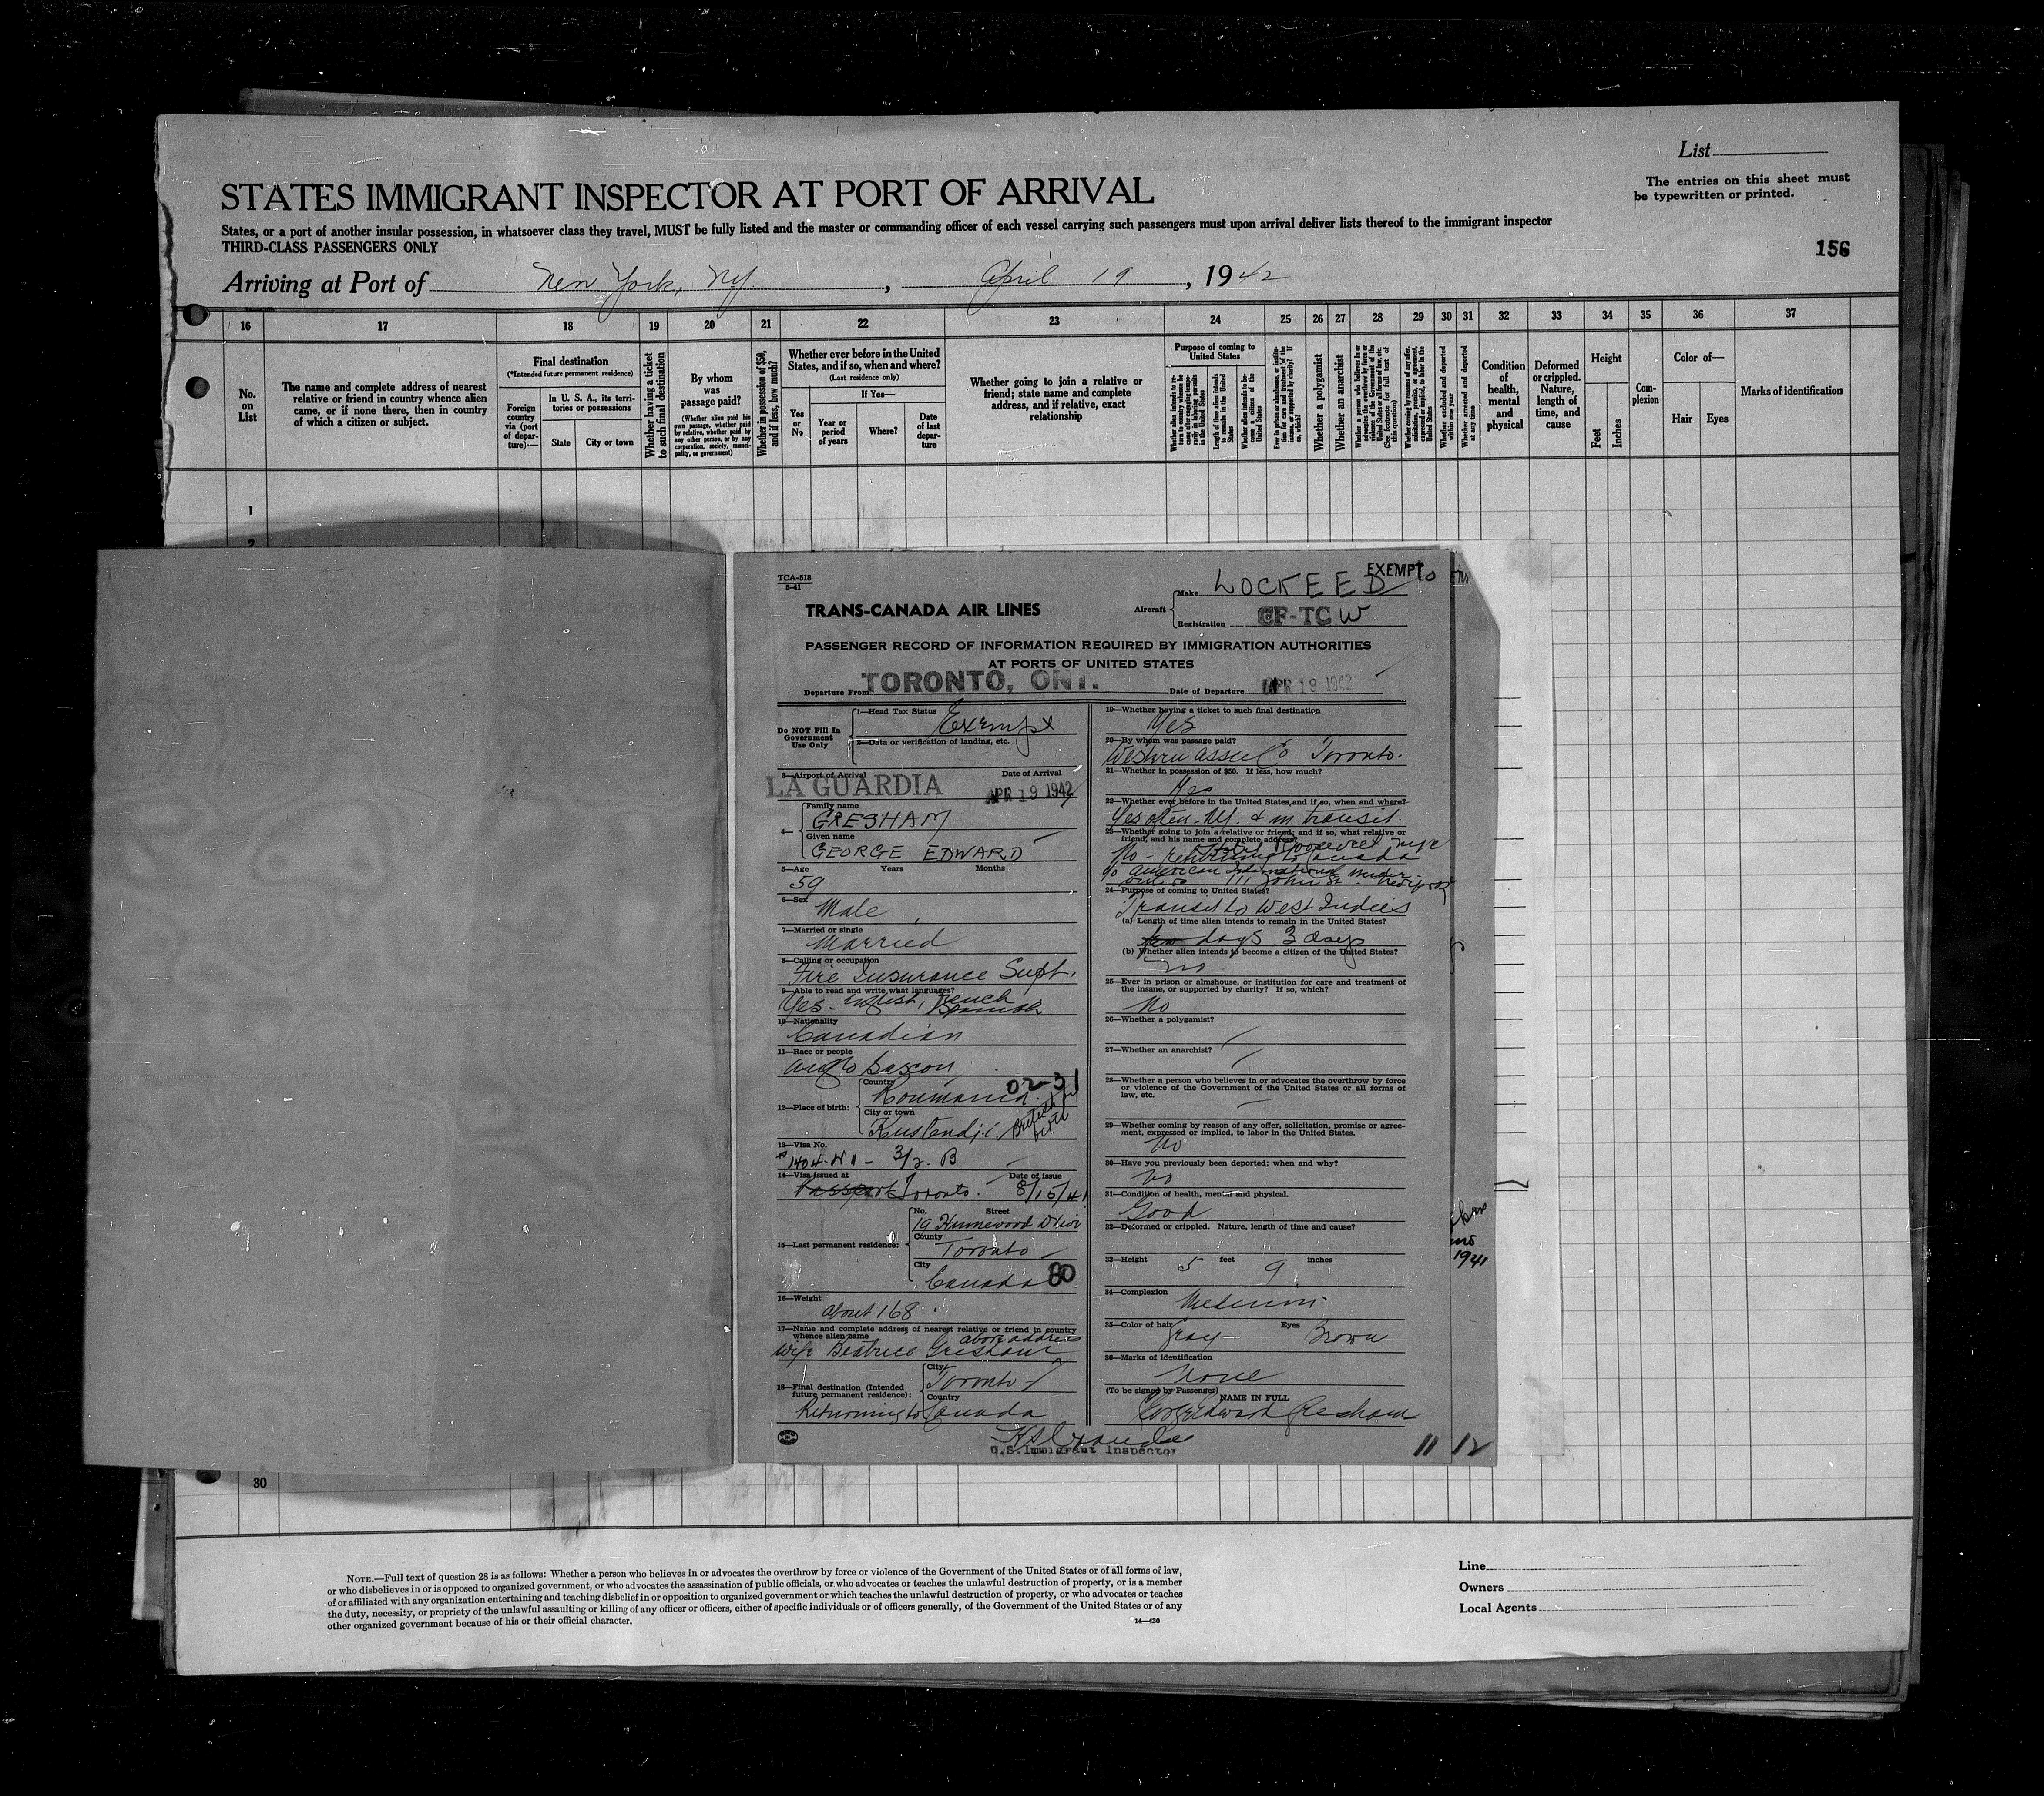 List
The entries on this sheet must
be typewritten or printed.
STATES IMMIGRANT INSPECTOR AT PORT OF ARRIVAL
States, or a port of another insular possession, in whatsoever class they travel, MUST be fully listed and the master or commanding officer of each vessel carrying such passengers must upon arrival deliver lists thereof to the immigrant inspector
THIRD-CLASS PASSENGERS ONLY
156
Arriving at Port of New York, NY. , April 19 , 1942
16 17 18 19 20 21 22 23 24 25 26 27 28 29 30 31 32 33 34 35 36 37
No. on List
The name and complete address of nearest relative or friend in country whence alien came, or if none there, then in country of which a citizen or subject.
Final destination
(*Intended future permanent residence)
Foreign country via (port of departure)—
In U. S. A., its territories or possessions
State
City or town
Whether having a ticket to such final destination
By whom was passage paid?
(Whether alien paid his own passage, whether paid by relative, whether paid by any other person, or by any corporation, society, municipality, or government)
Whether in possession of $50, and if less, how much?
Whether ever before in the United States, and if so, when and where?
(Last residence only)
Yes or No
If Yes—
Year or period of years
Where?
Date of last departure
Whether going to join a relative or friend; state name and complete address, and if relative, exact relationship
Purpose of coming to United States
Length of time alien intends to remain in the United States
Whether alien intends to become a citizen of the United States
Whether a polygamist
Whether an anarchist
Whether arrested and deported at any time
Condition of health, mental and physical
Deformed or crippled. Nature, length of time, and cause
Height
Feet
Inches
Complexion
Color of—
Hair
Eyes
Marks of identification
1
2
TCA-518
5-41
EXEMPT
TRANS-CANADA AIR LINES
Aircraft
Make LOCKEED
Registration CF-TCW
PASSENGER RECORD OF INFORMATION REQUIRED BY IMMIGRATION AUTHORITIES
AT PORTS OF UNITED STATES
Departure From TORONTO, ONT.
Date of Departure APR 19 1942
Do NOT Fill In Government Use Only
1—Head Tax Status Exempt
2—Data or verification of landing, etc.
3—Airport of Arrival Date of Arrival
LA GUARDIA APR 19 1942
4—
Family name
GRESHAM
Given name
GEORGE EDWARD
5—Age Years Months
59
6—Sex
Male
7—Married or single
Married
8—Calling or occupation
Fire Insurance Supt.
9—Able to read and write what languages?
Yes - English, French
Spanish
10—Nationality
Canadian
11—Race or people
Anglo Saxon
12—Place of birth:
Country 02-31
Roumania
City or town
Kustendji
British
birth
13—Visa No.
1404-N1 - 3/2. B
14—Visa issued at Date of issue
Passport Toronto. 8/15/41
15—Last permanent residence:
No. Street
19 Humewood Drive
County
Toronto
City
Canada 80
16—Weight
About 168
17—Name and complete address of nearest relative or friend in country
whence alien came above address
Wife Beatrice Gresham
18—Final destination (Intended
future permanent residence):
City
Toronto
Country
Returning to Canada
19—Whether having a ticket to such final destination
Yes
20—By whom was passage paid?
Western Assce Co Toronto.
21—Whether in possession of $50. If less, how much?
Yes
22—Whether ever before in the United States, and if so, when and where?
Yes often - NY. & in transit.
23—Whether going to join a relative or friend; and if so, what relative or
friend, and his name and complete address?
Hotel Roosevelt NYC
No - returning to Canada
c/o American International Under-
writers 111 John St.
24—Purpose of coming to United States?
Transit to West Indies
(a) Length of time alien intends to remain in the United States?
few days 3 days
(b) Whether alien intends to become a citizen of the United States?
no
25—Ever in prison or almshouse, or institution for care and treatment of
the insane, or supported by charity? If so, which?
No
26—Whether a polygamist?
27—Whether an anarchist?
28—Whether a person who believes in or advocates the overthrow by force
or violence of the Government of the United States or all forms of
law, etc.
29—Whether coming by reason of any offer, solicitation, promise or agree-
ment, expressed or implied, to labor in the United States.
No
30—Have you previously been deported; when and why?
No
31—Condition of health, mental and physical.
Good
32—Deformed or crippled. Nature, length of time and cause?
33—Height 5 feet 9 inches
34—Complexion
Medium
35—Color of hair Eyes
Gray Brown
36—Marks of identification
None
(To be signed by Passenger) NAME IN FULL
George Edward Gresham
U.S. Immigrant Inspector
11 12
1941
30
NOTE.—Full text of question 28 is as follows: Whether a person who believes in or advocates the overthrow by force or violence of the Government of the United States or of all forms of law,
or who disbelieves in or is opposed to organized government, or who advocates the assassination of public officials, or who advocates or teaches the unlawful destruction of property, or is a member
of or affiliated with any organization entertaining and teaching disbelief in or opposition to organized government or which teaches the unlawful destruction of property, or who advocates or teaches
the duty, necessity, or propriety of the unlawful assaulting or killing of any officer or officers, either of specific individuals or of officers generally, of the Government of the United States or of any
other organized government because of his or their official character.
14—430
Line
Owners
Local Agents